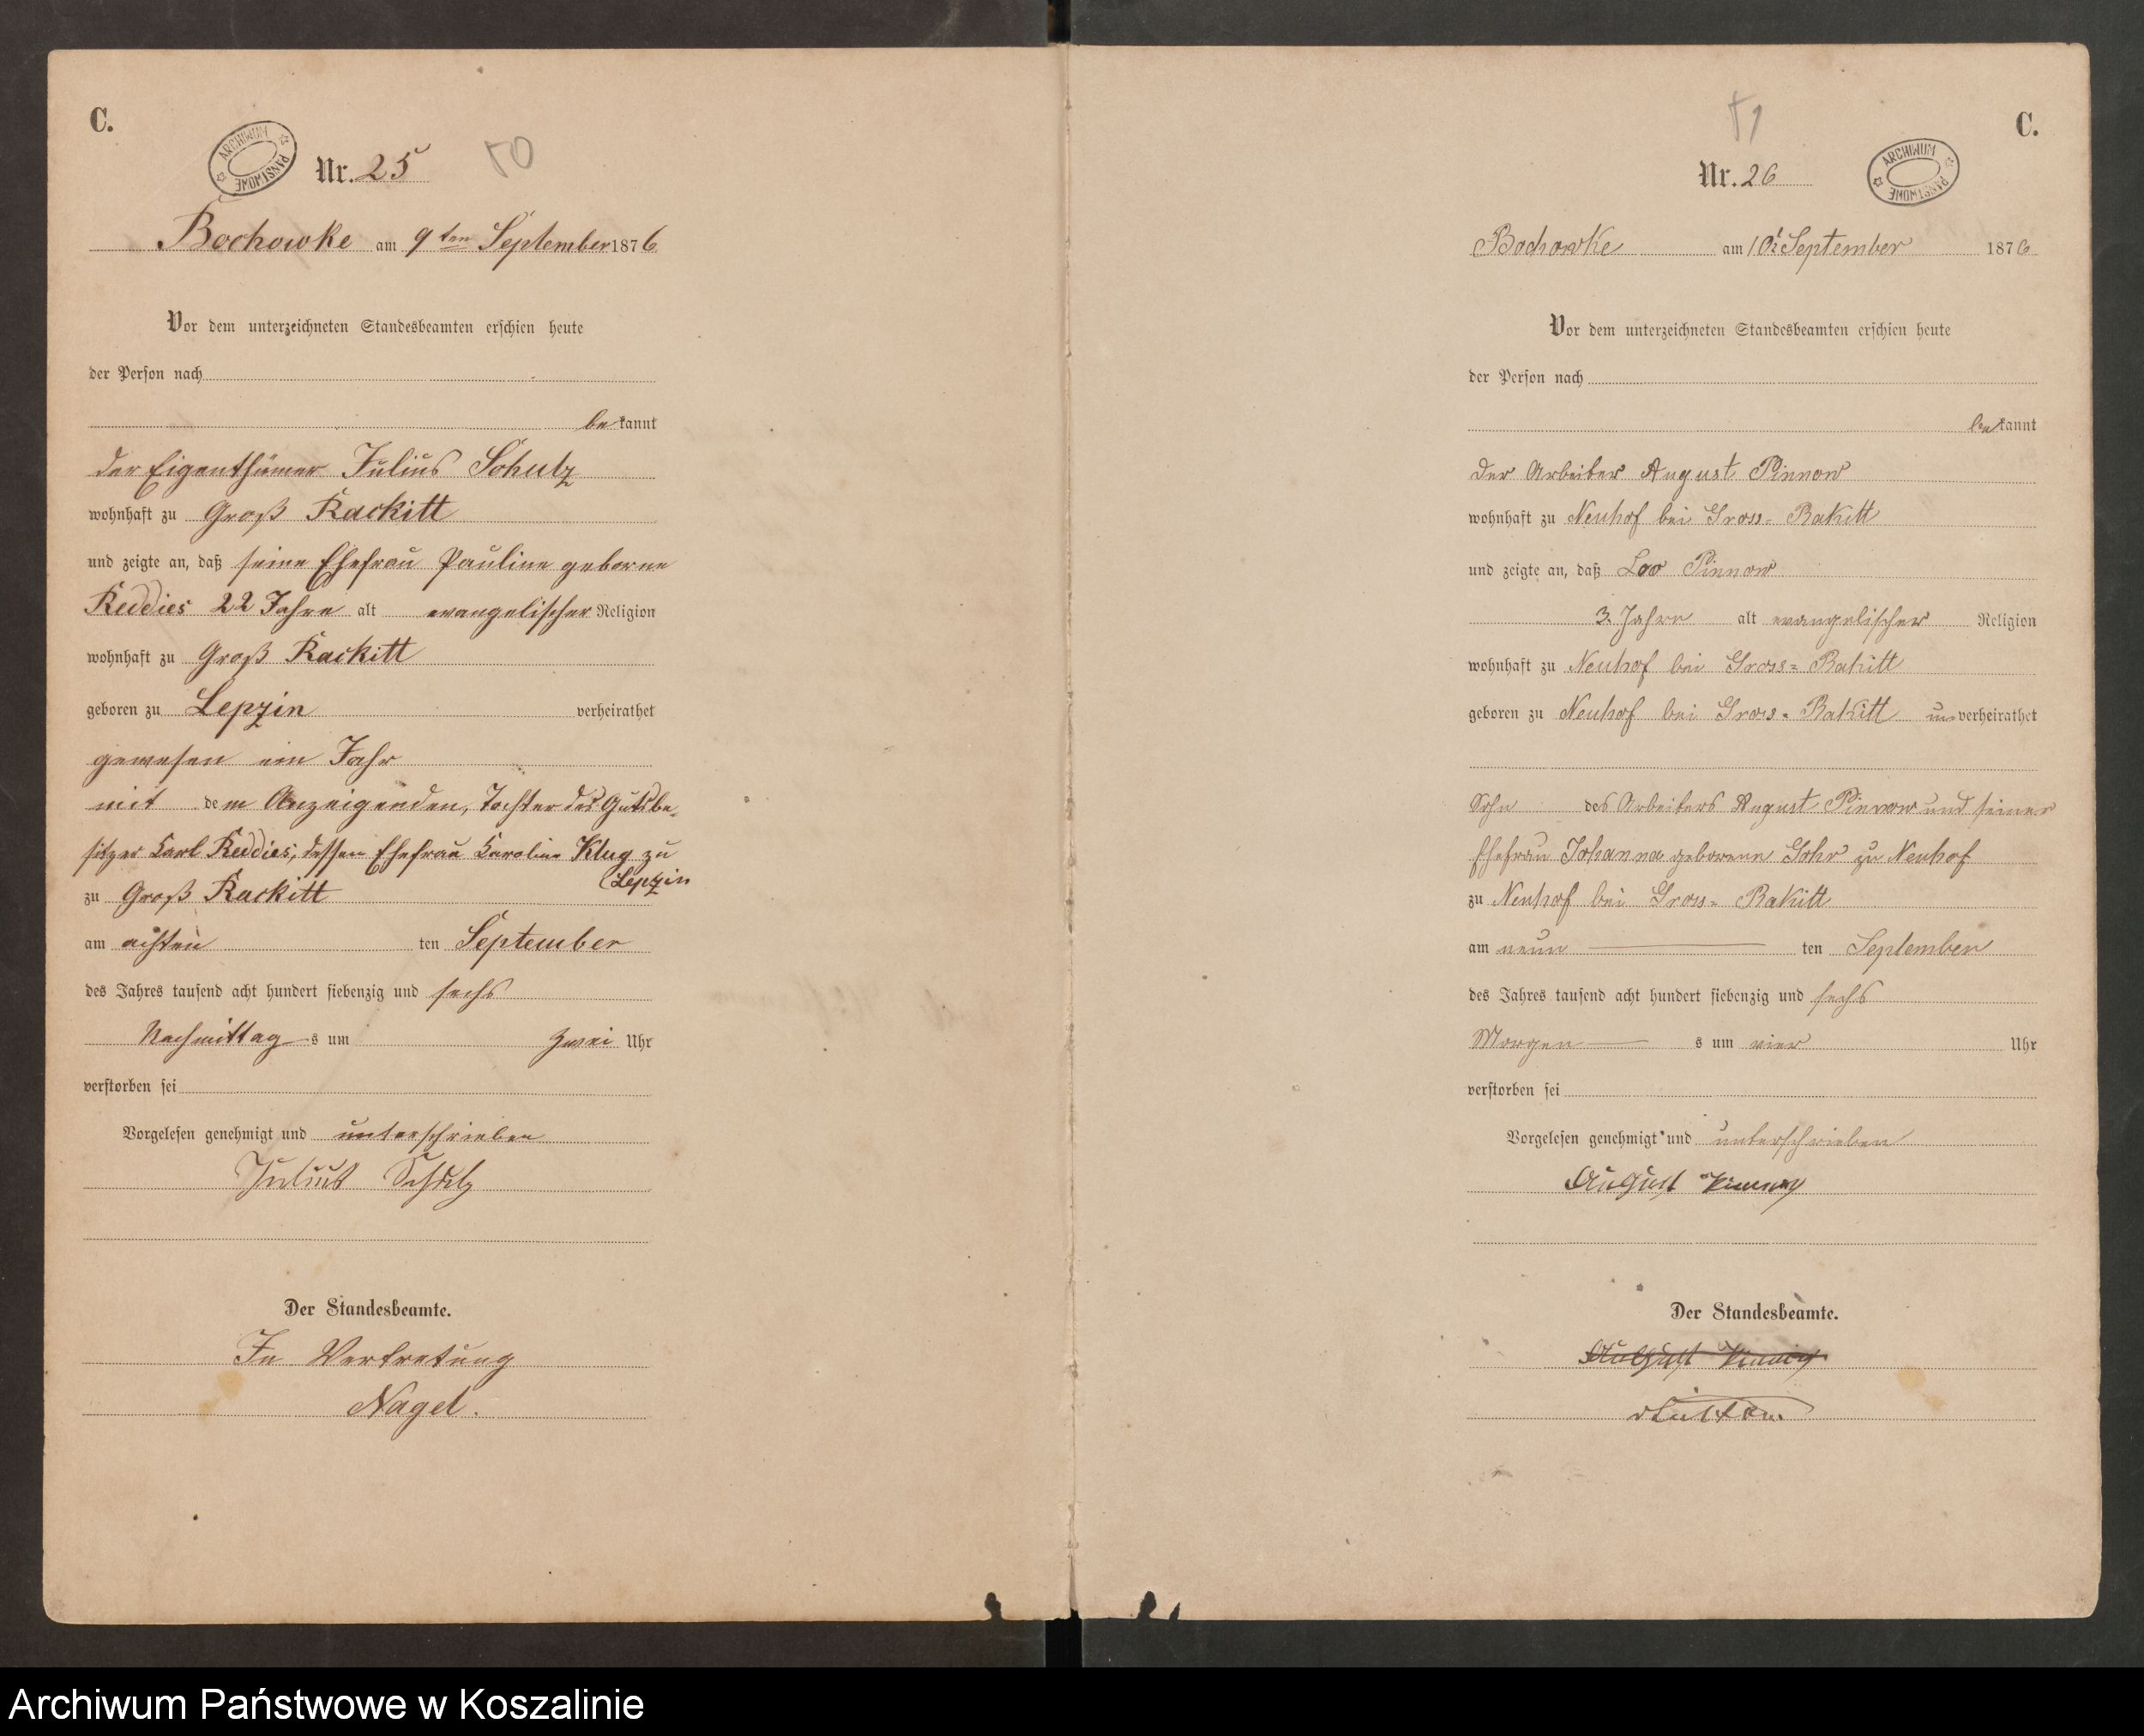 C.
ARCHIWUM PAŃSTWOWE
Nr. 25
50
Bochowke am 9ten September 1876
Vor dem unterzeichneten Standesbeamten erschien heute
der Person nach
bekannt
der Eigenthümer Julius Schulz
wohnhaft zu Groß Rackitt
und zeigte an, daß seine Ehefrau Pauline geborne
Reddies 22 Jahre alt evangelischer Religion
wohnhaft zu Groß Rackitt
geboren zu Lepzin verheirathet
gewesen ein Jahr
mit dem Anzeigenden, Tochter des Gutsbe-
sitzer Carl Reddies, dessen Ehefrau Caroline Klug zu
Lepzin
zu Groß Rackitt
am achten ten September
des Jahres tausend acht hundert siebenzig und sechs
Nachmittag s um zwei Uhr
verstorben sei
Vorgelesen genehmigt und unterschrieben
Julius Schulz
Der Standesbeamte.
In Vertretung
Nagel.
C.
51
ARCHIWUM PAŃSTWOWE
Nr. 26
Bochowke am 10t September 1876
Vor dem unterzeichneten Standesbeamten erschien heute
der Person nach
bekannt
der Arbeiter August Pinnow
wohnhaft zu Neuhof bei Gross- Rakitt
und zeigte an, daß Leo Pinnow
3 Jahre alt evangelischer Religion
wohnhaft zu Neuhof bei Gross- Rakitt
geboren zu Neuhof bei Gross- Rakitt unverheirathet
Sohn des Arbeiters August Pinnow und seiner
Ehefrau Johanna geborenen Gohr zu Neuhof
zu Neuhof bei Gross- Rakitt
am neun ten September
des Jahres tausend acht hundert siebenzig und sechs
Morgen s um vier Uhr
verstorben sei
Vorgelesen genehmigt und unterschrieben
August Pinnow
Der Standesbeamte.
August
Archiwum Państwowe w Koszalinie